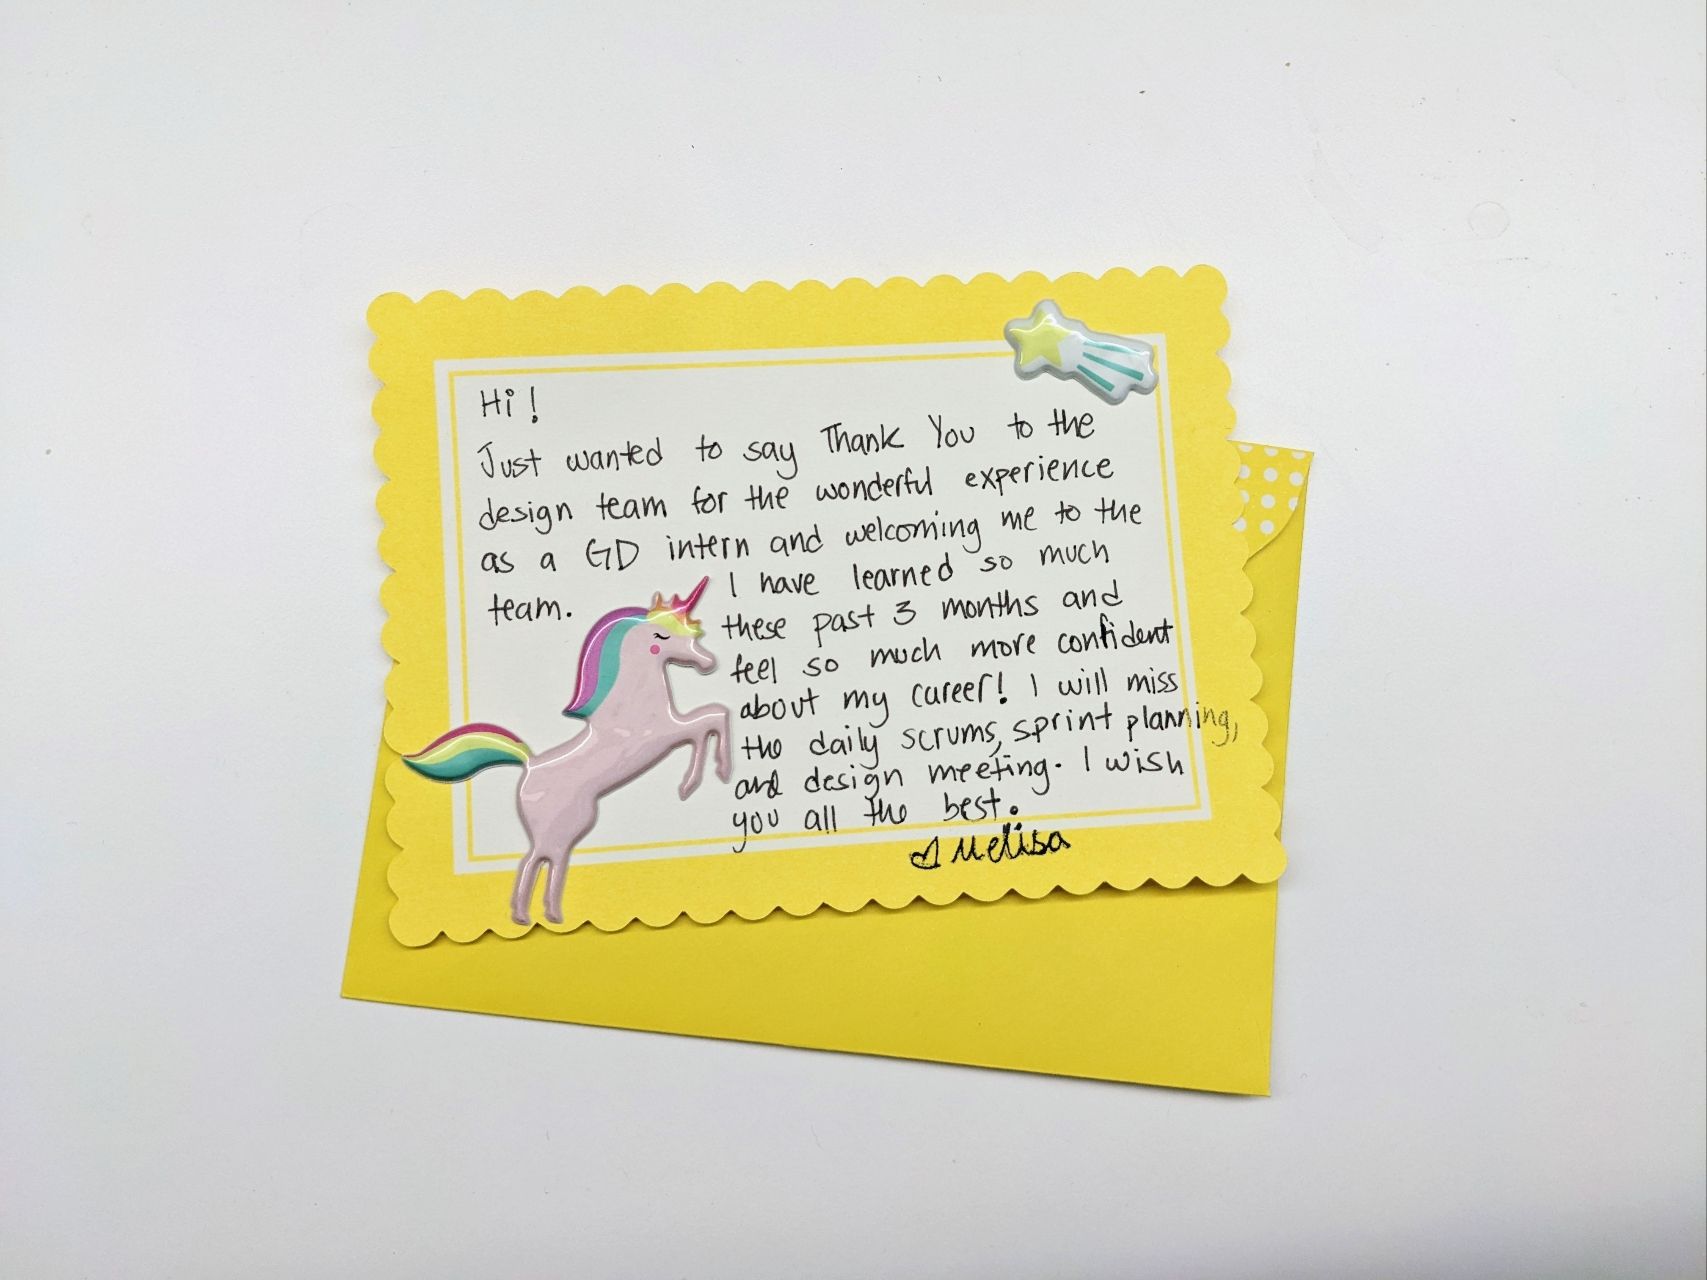 Hi!
Just wanted to say Thank You to the
design team for the wonderful experience
as a GD intern and welcoming me to the
team.
I have learned so much
these past 3 months and
feel so much more confident
about my career! I will miss
the daily scrums, sprint planning,
and design meeting. I wish
you all the best.
♡ Melisa